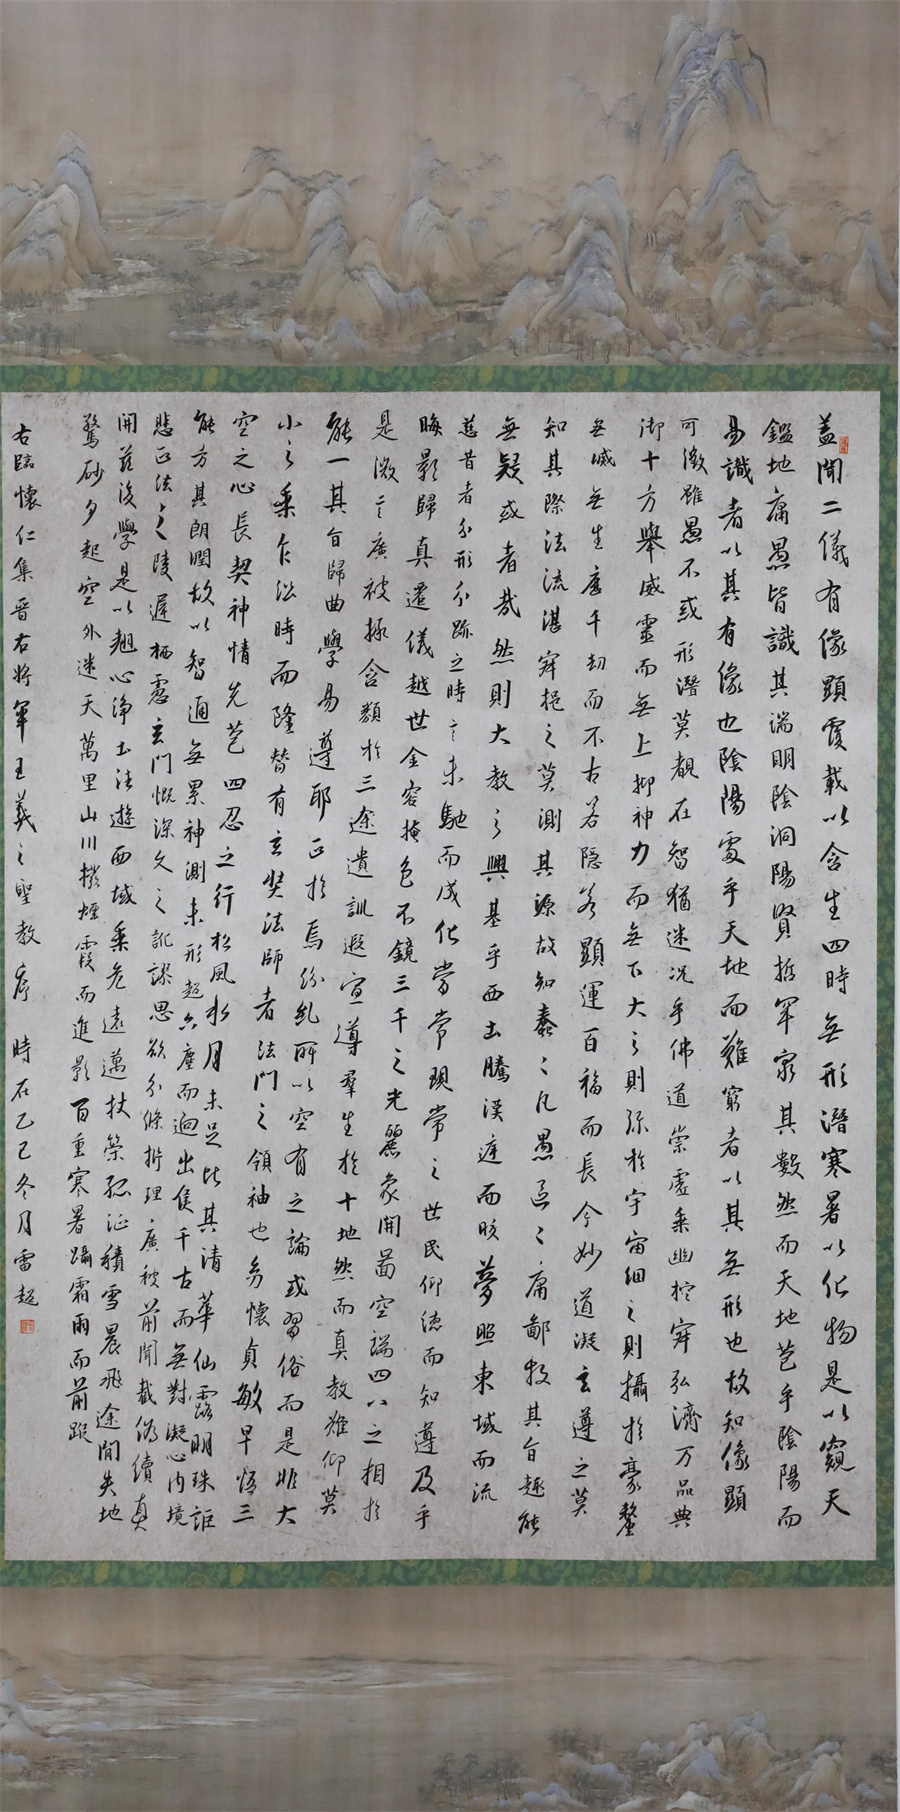 蓋聞二儀有像顯覆載以含生四時無形潛寒暑以化物是以窺天
鑑地庸愚皆識其端明陰洞陽賢哲罕窮其數然而天地苞乎陰陽而
易識者以其有像也陰陽處乎天地而難窮者以其無形也故知像顯
可徵雖愚不惑形潛莫覩在智猶迷況乎佛道崇虛乘幽控寂弘濟万品典
御十方舉威靈而無上抑神力而無下大之則彌於宇宙細之則攝於豪釐
無滅無生歷千劫而不古若隱若顯運百福而長今妙道凝玄遵之莫
知其際法流湛寂挹之莫測其源故知蠢々凡愚區々庸鄙投其旨趣能
無疑或者哉然則大教之興基乎西土騰漢庭而皎夢照東域而流
慈昔者分形分跡之時言未馳而成化當常現常之世民仰德而知遵及乎
晦影歸真遷儀越世金容掩色不鏡三千之光麗象開圖空端四八之相於
是微言廣被拯含類於三途遺訓遐宣導羣生於十地然而真教難仰莫
能一其旨歸曲學易遵耶正於焉紛糺所以空有之論或習俗而是非大
小之乘乍沿時而隆替有玄奘法師者法門之領袖也幼懷貞敏早悟三
空之心長契神情先苞四忍之行松風水月未足比其清華仙露明珠詎
能方其朗潤故以智通無累神測未形超六塵而迥出隻千古而無對凝心內境
悲正法之陵遲栖慮玄門慨深文之訛謬思欲分條析理廣彼前聞截偽續真
開茲後學是以翹心淨土法遊西域乘危遠邁杖策孤征積雪晨飛途間失地
驚砂夕起空外迷天萬里山川撥煙霞而進影百重寒暑躡霜雨而前蹤
右臨懷仁集晉右將軍王羲之聖教序 時在乙巳冬月雷超